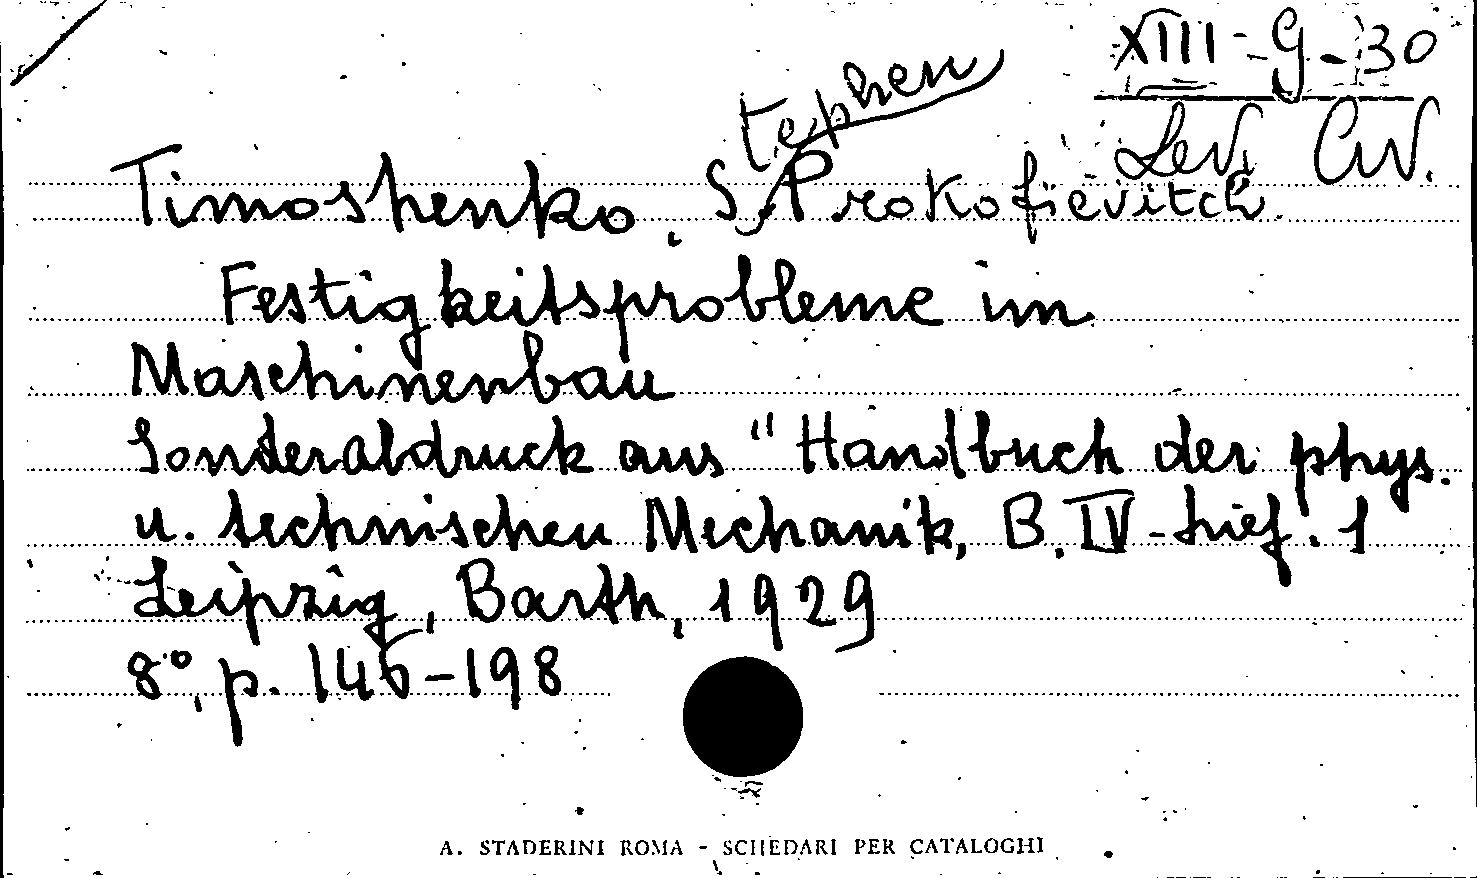 XIII - G - 30
Lev. Civ.
Timoshenko, Stephen Prokofievitch.
Festigkeitsprobleme im
Maschinenbau
Sonderabdruck aus "Handbuch der phys.
u. technischen Mechanik, B. IV - Lief. 1
Leipzig, Barth, 1929
8°, p. 146-198
A. STADERINI ROMA - SCHEDARI PER CATALOGHI